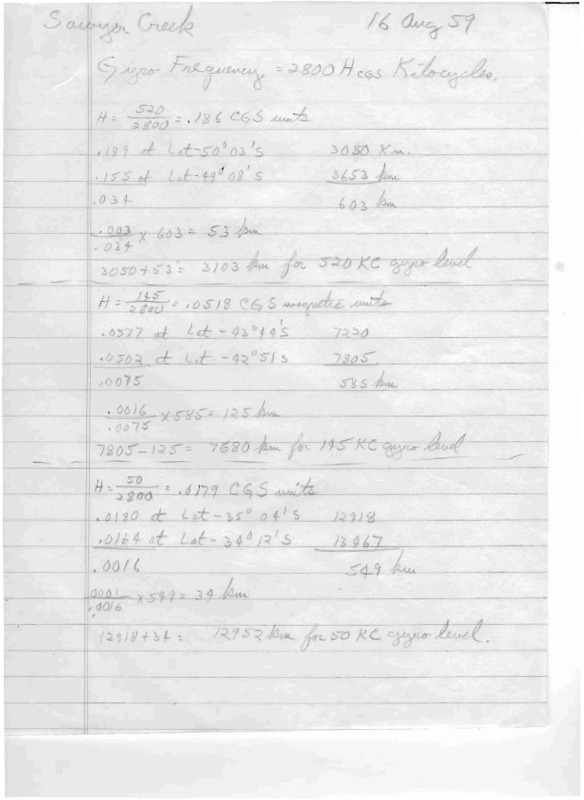 Sawyer Creek 16 Aug 59
Gyro Frequency = 2800 H CGS Kilocycles.
H = 520/2800 = .186 CGS units
.189 at Lat -50° 03' S 3050 Km.
.155 at Lat -49° 08' S 3653 km
.034 603 km
.003/.034 x 603 = 53 km
3050+53 = 3103 km for 520 KC gyro level
H = 145/2800 = .0518 CGS magnetic units
.0577 at Lat -43° 44' S 7220
.0502 at Lat -42° 51 S 7805
.0075 585 km
.0016/.0075 x 585 = 125 km
7805-125 = 7680 km for 145 KC gyro level
H = 50/2800 = .0179 CGS units
.0180 at Lat -35° 04' S 12918
.0164 at Lat - 34° 12' S 13467
.0016 549 km
.0001/.0016 x 549 = 34 km
12918+34 = 12952 km for 50 KC gyro level.